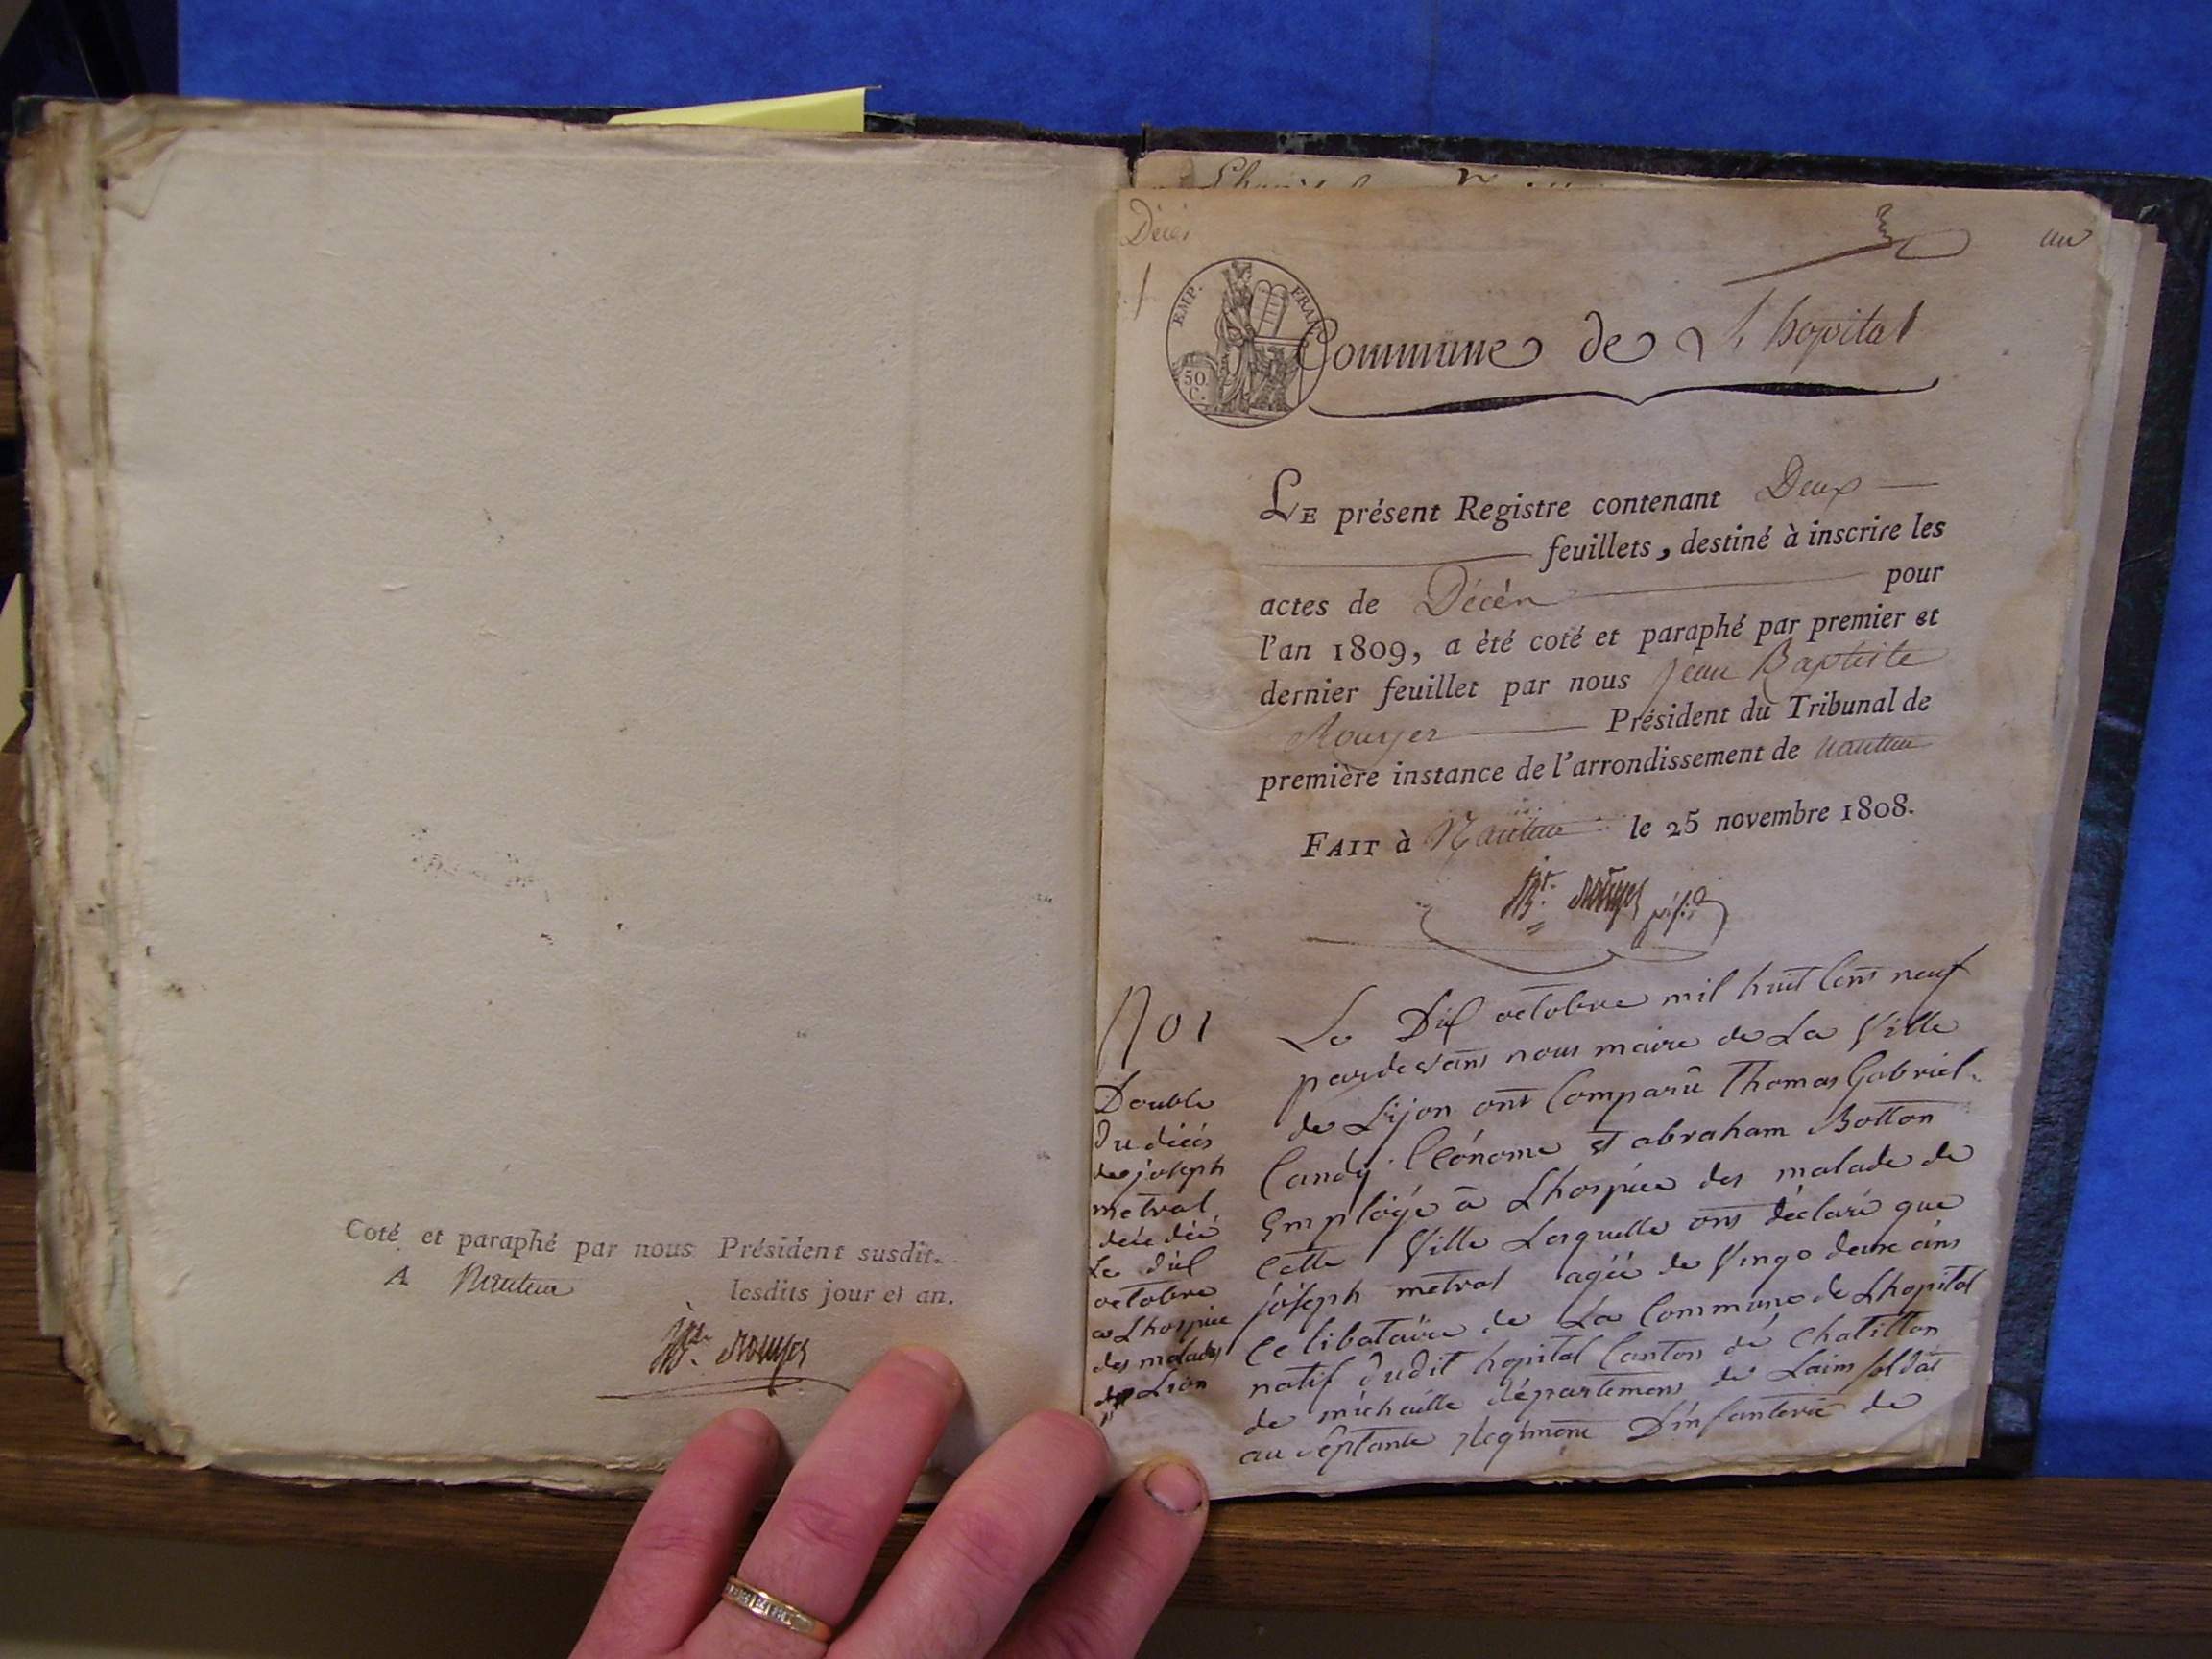 Coté et paraphé par nous Président susdit.
A Nantua lesdits jour et an.
Bte. Rouyer
Décès
un
EMP. FRAN
50
C.
Commune de L'hopital
LE présent Registre contenant Deux
feuillets, destiné à inscrire les
actes de Décès pour
l'an 1809, a èté coté et paraphé par premier et
dernier feuillet par nous Jean Baptiste
Rouyer Président du Tribunal de
première instance de l'arrondissement de nantua
FAIT à Nantua le 25 novembre 1808.
Bt. Rouyer
No 1
Double
du décés
de joseph
metral
décédé
Le dix
octobre
a Lhospice
des malades
de Lion
Le Dix octobre mil huit Cent neuf
pardevant nous maire de La Ville
de Lijon ont Comparû Thomas Gabriel
Candy Econome et abraham Botton
Employé a Lhospice des malade de
Cette Ville Lesquelle ont déclaré que
joseph metral agéé de Vingt deux ans
Celibataire de La Commune de Lhopital
natif dudit hopital Canton de Chatillon
de michaille département de Lain soldat
au septante Regiment Dinfanterie de